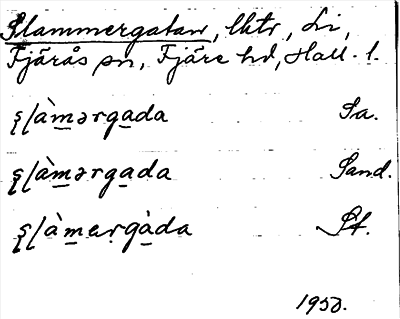 Slammergatan, lktr, Li,
Fjärås sn, Fjäre hd, Hall. l.
s̨làmərgada Sa.
s̨làmərgada Sand.
s̨làmergàda St.
1950.